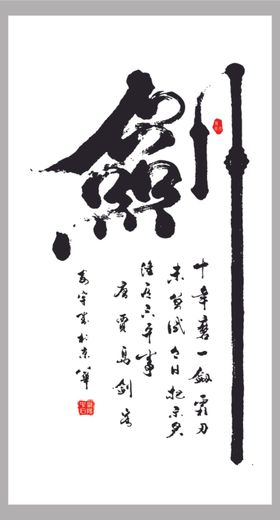 劍
十年磨一劍霜刃
未曾試今日把示君
誰有不平事
唐賈島劍客
於京華